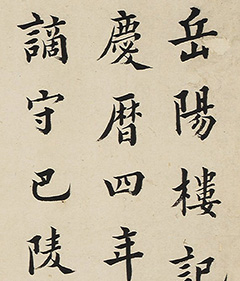 岳陽樓記
慶曆四年
謫守巴陵